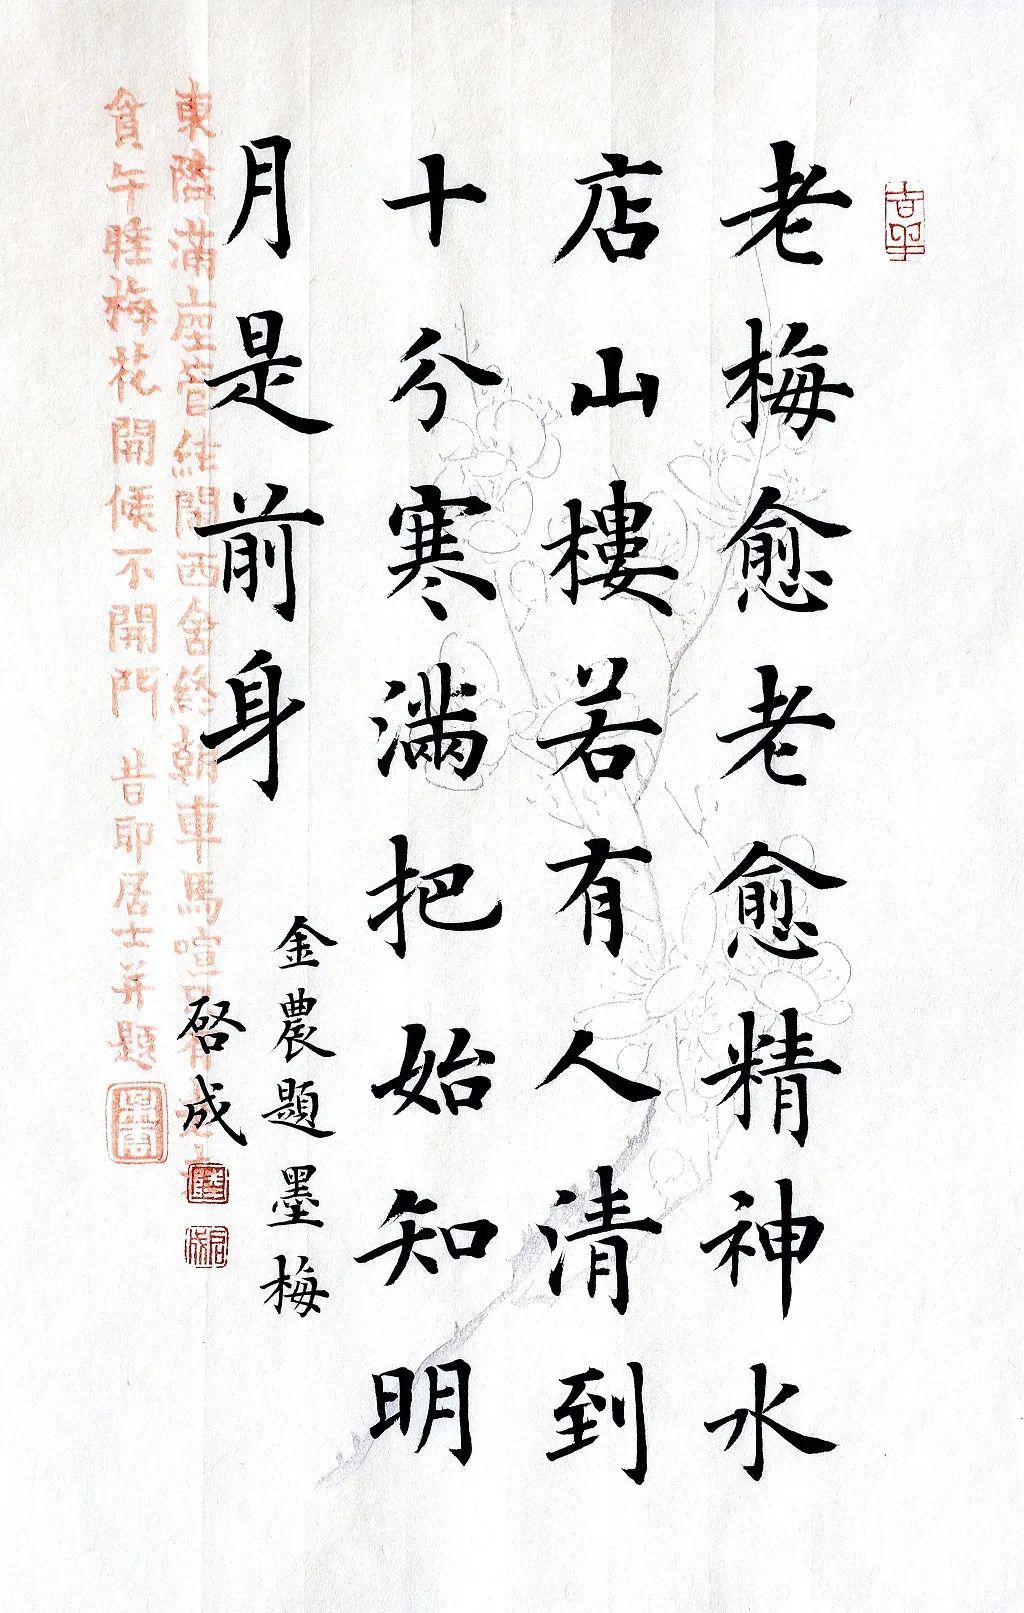 吉羊
老梅愈老愈精神水
店山樓若有人清到
十分寒滿把始知明
月是前身
金農題墨梅
啓成
東隣滿座管絃鬧西舍終朝車馬喧只有老夫
貪午睡梅花開候不開門 昔耶居士并題